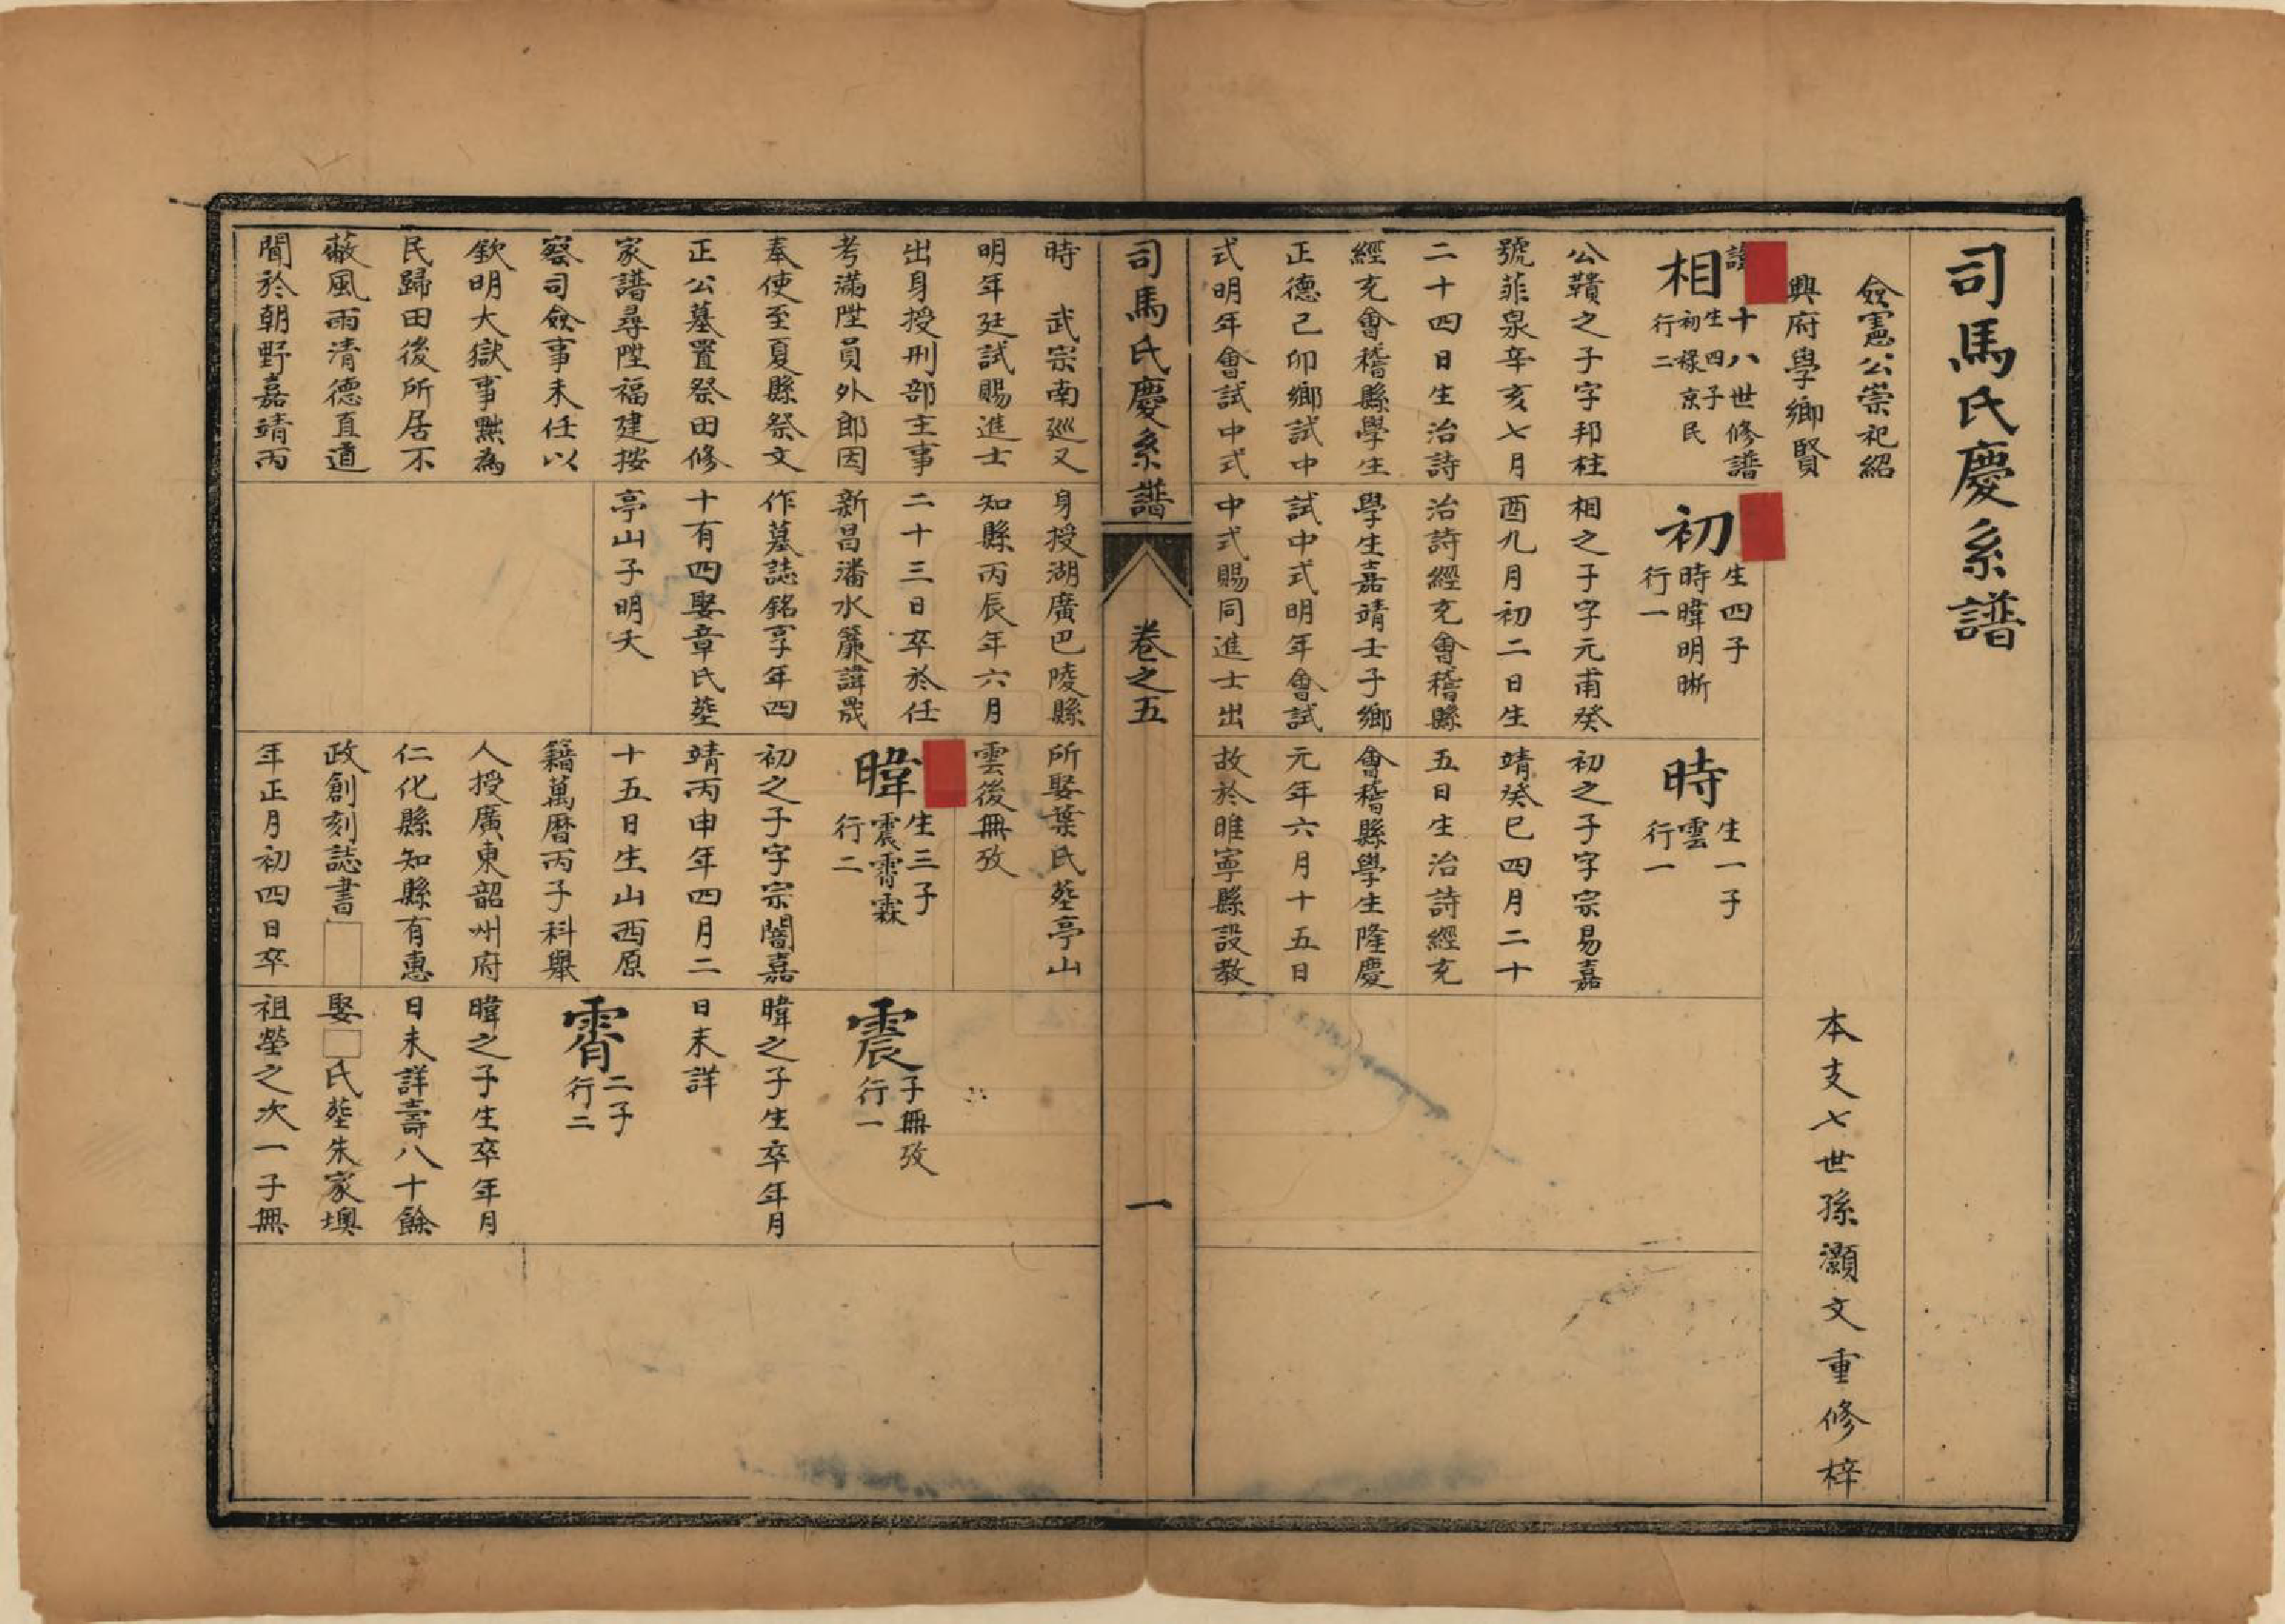 司馬氏慶系譜
僉憲公崇祀紹
興府學鄉賢
本支七世孫灝文重修梓
十八世修譜
相
生四子
初祿京民
行二
公鞼之子字邦柱
號菲泉辛亥七月
二十四日生治詩
經充會稽縣學生
正德己卯鄉試中
式明年會試中式
初
生四子
時暐明晰
行一
相之子字元甫癸
酉九月初二日生
治詩經充會稽縣
學生嘉靖壬子鄉
試中式明年會試
中式賜同進士出
時
生一子
雲
行一
初之子字宗易嘉
靖癸巳四月二十
五日生治詩經充
會稽縣學生隆慶
元年六月十五日
故於睢寧縣設教
司馬氏慶系譜
卷之五
一
時 武宗南廵又
明年廷試賜進士
出身授刑部主事
考滿陞員外郎因
奉使至夏縣祭文
正公墓置祭田修
家譜尋陞福建按
察司僉事未任以
欽明大獄事黜為
民歸田後所居不
蔽風雨清德直道
聞於朝野嘉靖丙
身授湖廣巴陵縣
知縣丙辰年六月
二十三日卒於任
新昌潘水簾諱晟
作墓誌銘享年四
十有四娶章氏塟
亭山子明夭
所娶葉氏塟亭山
雲後無攷
暐
生三子
震霄霖
行二
初之子字宗闇嘉
靖丙申年四月二
十五日生山西原
籍萬曆丙子科舉
人授廣東韶州府
仁化縣知縣有惠
政創刻誌書
年正月初四日卒
震
子無攷
行一
暐之子生卒年月
日未詳
霄
二子
行二
暐之子生卒年月
日未詳壽八十餘
娶□氏塟朱家墺
祖塋之次一子無